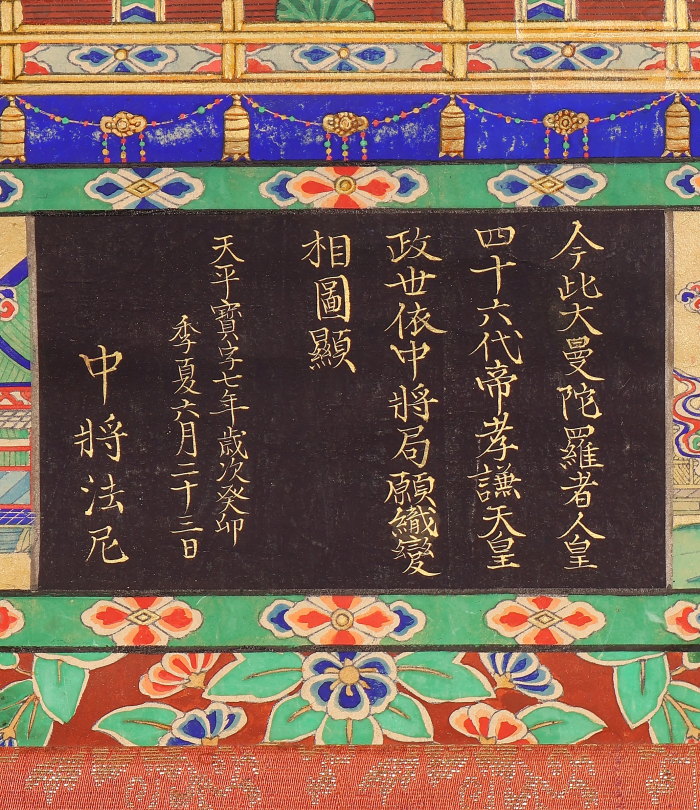 今此大曼陀羅者人皇
四十六代帝孝謙天皇
政世依中將局願織變
相圖顯
天平寶字七年歳次癸卯
季夏六月二十三日
中將法尼